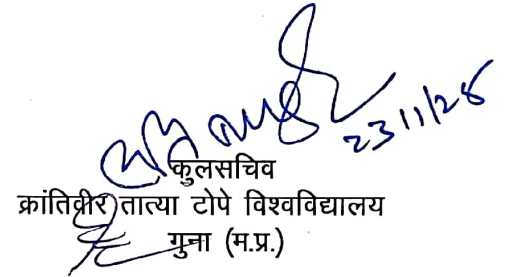 23/1/28
कुलसचिव
क्रांतिवीर तात्या टोपे विश्वविद्यालय
गुना (म.प्र.)